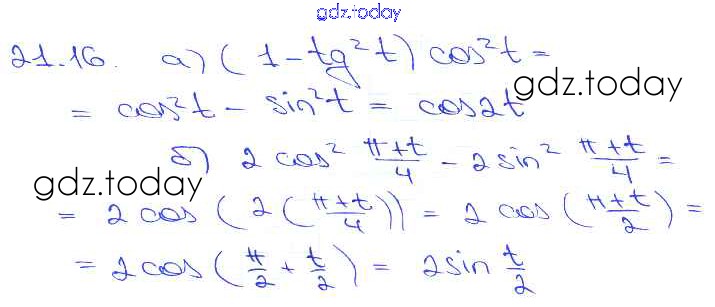 gdz.today
21.16. а) (1 - tg²t) cos²t =
= cos²t - sin²t = cos2t
gdz.today
б) 2 cos² (π+t)/4 - 2 sin² (π+t)/4 =
gdz.today
= 2 cos (2((π+t)/4)) = 2 cos ((π+t)/2) =
= 2 cos (π/2 + t/2) = 2 sin t/2